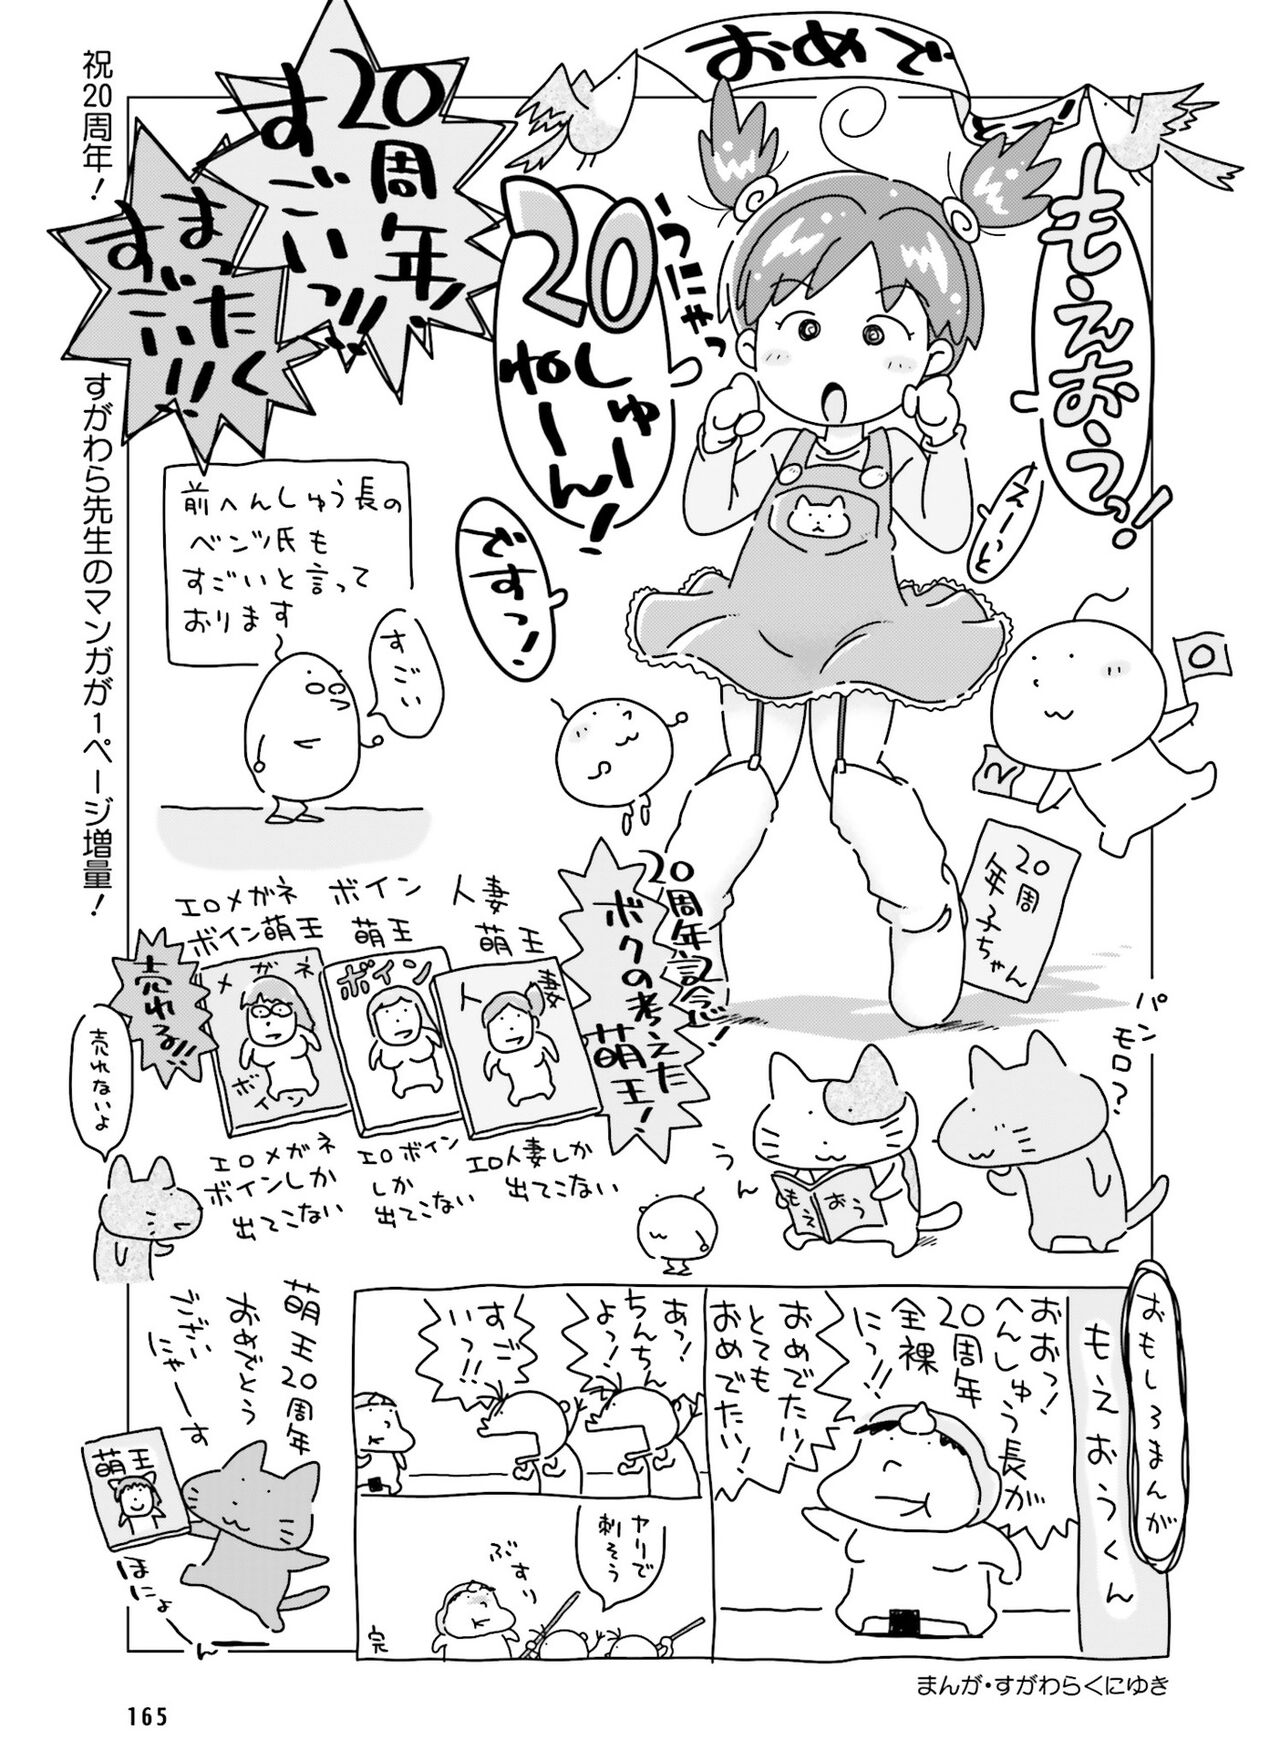 祝20周年！
すがわら先生のマンガが1ページ増量！
おめで
とー！
もえおうっ！
えーいと
うにゃっ
20
しゅー
ねーん！
ですっ！
20周年！
すごいっ!!!
まったく
すごいっ!!!
前へんしゅう長の
ベンツ氏も
すごいと言って
おります
すごい
20周
年子ちゃん
20周年記念！
ボクの考えた
萌王！
人妻
萌王
人妻
エロ人妻しか
出てこない
ボイン
萌王
ボイン
エロボイン
しか
出てこない
エロメガネ
ボイン萌王
メガネ
ボイン
エロメガネ
ボインしか
出てこない
売れる!!!
売れないよ
パン
モロ？
うん
もえ
おう
おもしろまんが
もえおうくん
おおっ！
へんしゅう長が
20周年
全裸
にっ!!
おめでたい！
とても
おめでたい！
あっ！
ちんちん
よっ！
すご
いっ!!
ヤリで
刺そう
ぶすり
完
萌王20周年
おめでとう
ござい
にゃーす
萌王
ほにょ
ん
まんが・すがわらくにゆき
165